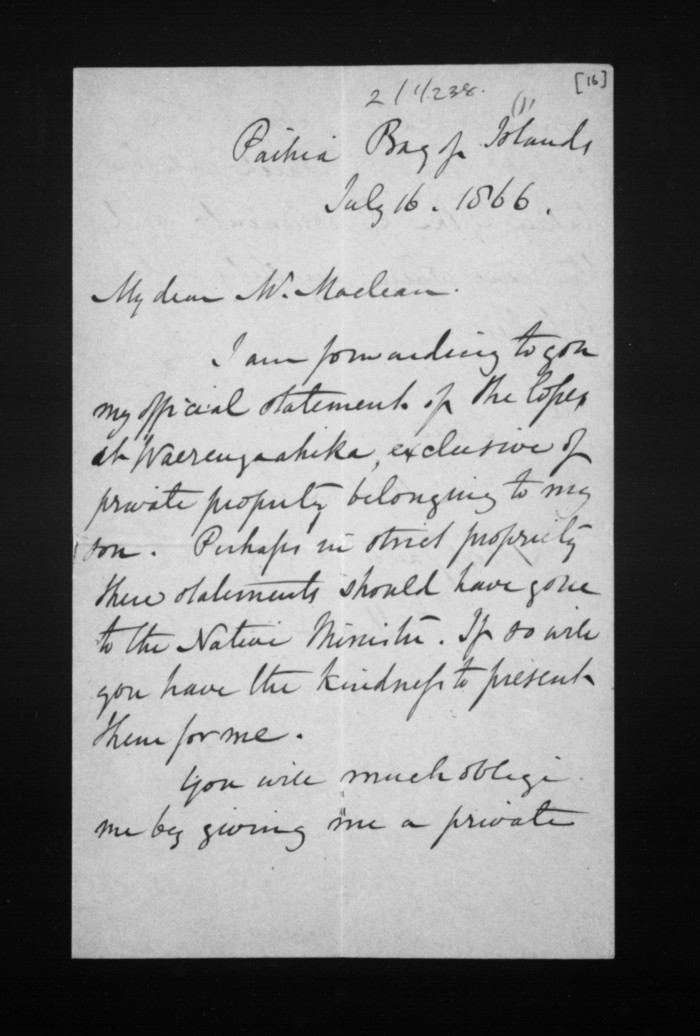 [16]
2/1/238.
Paihia Bay of Islands
July 16. 1866.
My dear Mr. Maclean.
I am forwarding to you
my official statement of the losses
at Waerengaahika, exclusive of
private property belonging to my
son. Perhaps in strict propriety
these statements should have gone
to the Native Minister. If so will
you have the kindness to present
them for me.
You will much oblige
me by giving me a private